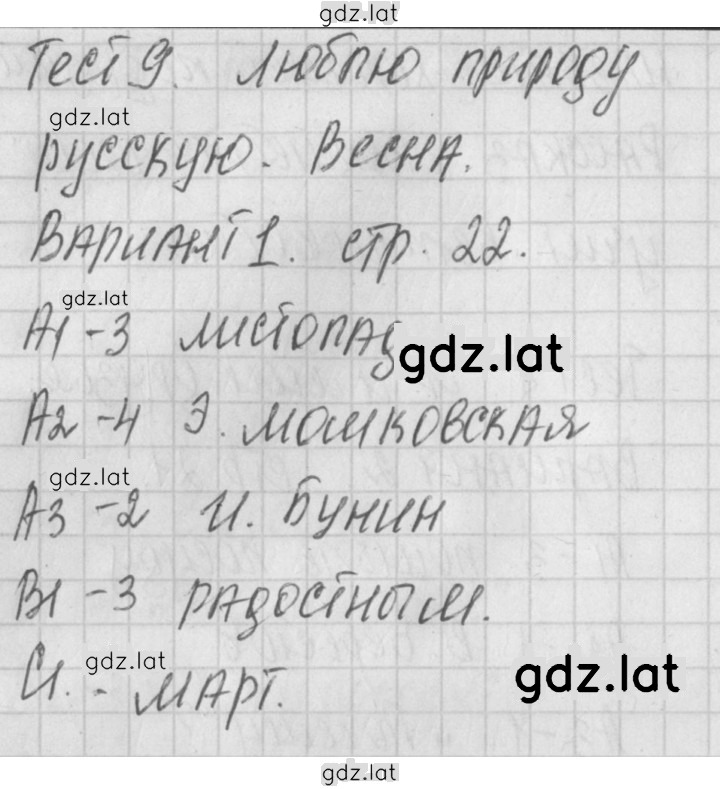 gdz.lat
Тест 9. Люблю природу
gdz.lat
русскую. Весна.
Вариант 1. стр. 22.
gdz.lat
А1 - 3 листопад
gdz.lat
А2 - 4 Э. Мошковская
gdz.lat
А3 - 2 И. Бунин
В1 - 3 радостным.
gdz.lat
С1. - март.
gdz.lat
gdz.lat